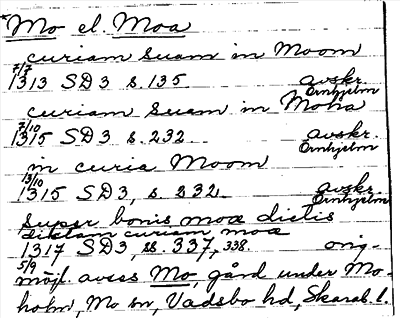 Mo el. Moa
curiam suam in Moom
7/7
1313 SD3 s. 135. avskr.
Örnhjelm
curiam suam in Moha
7/10
1315 SD3 s. 232. avskr.
Örnhjelm
in curia Moom
13/10
1315 SD3, s. 232. avskr.
Örnhjelm
super bonis moæ dictis
dictam curiam moæ
1317 SD3, ss. 337, 338. orig.
5/9
möjl. avses Mo, gård under Mo-
holm, Mo sn, Vadsbo hd, Skarab. l.